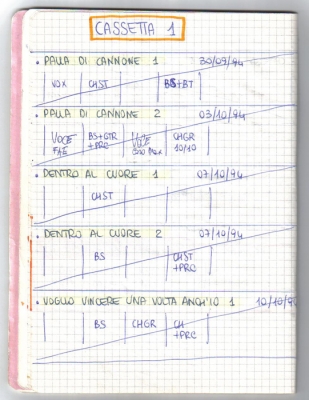 CASSETTA 1
• PALLA DI CANNONE 1 30/09/94
VOX CHST BS+BT
• PALLA DI CANNONE 2 03/10/94
VOCE BS+GTR CHGR
FAE +PRC 10/10
• DENTRO AL CUORE 1 07/10/94
CHST
• DENTRO AL CUORE 2 07/10/94
BS CHST
+PRC
• VOGLIO VINCERE UNA VOLTA ANCH'IO 1 10/10/94
BS CHGR CH
+PRC